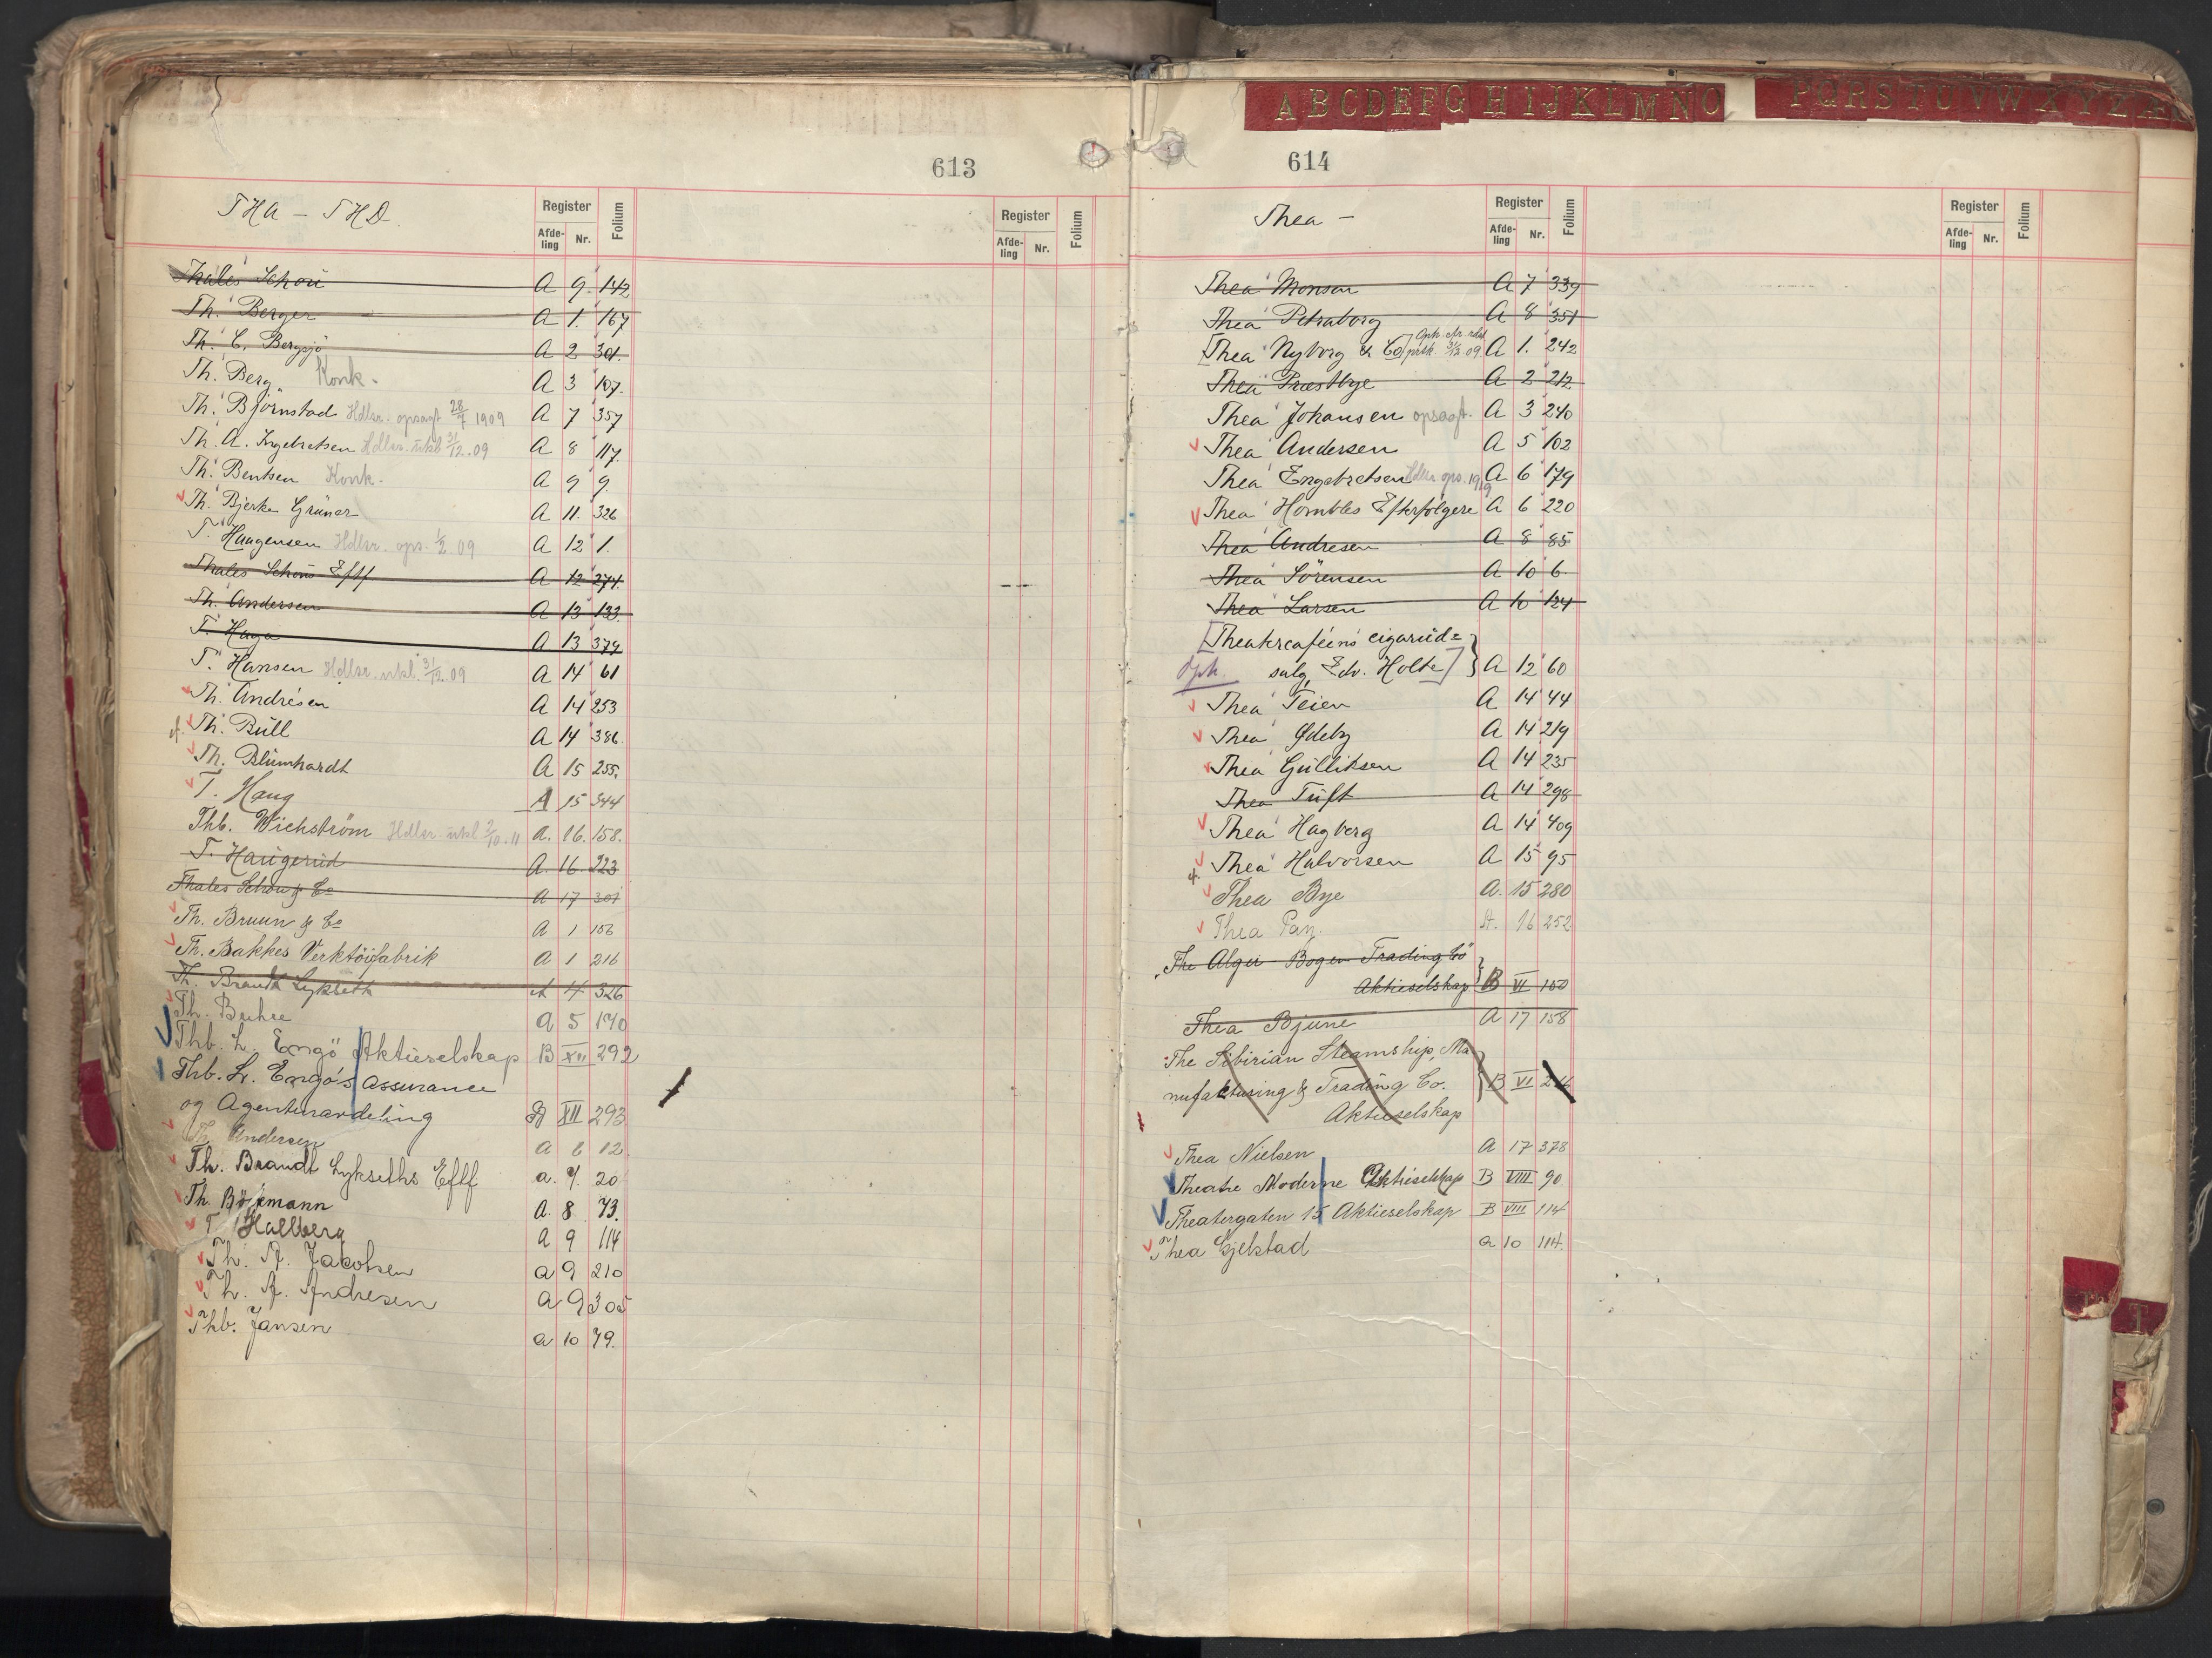 613
THA - THD.
Register
Afde-ling Nr. Folium
Register
Afde-ling Nr. Folium
Thales Schou A 9. 142
Th. Berger A 1. 167
Th. C. Bergsjö A 2 301.
Th. Berg. Konk. A 3 107.
Th. Björnstad Hdlsr. opsagt 28/7 1909 A 7 357
Th. A. Ingebretsen Hdlsr. utkl 31/12.09 A 8 117.
Th. Bentsen Konk. A 9 9.
Th. Bjerke Grüner A 11. 326
T. Haagensen Hdlsr. ops. 1/2.09 A 12 1.
Thales Schous Eftf A 12 274.
Th. Andersen A 13 133.
T. Haga A 13 379
T. Hansen Hdlsr. utkl. 31/12.09 A 14 61
Th. Andresen A 14 253
Th. Bull A 14 386.
Th. Blumhardt A 15 255.
T. Haug A 15 344
Thb. Wichström Hdlsr. utkl 2/10.11 A. 16. 158.
T. Haugerud A. 16. 223
Thales Schou & Co A 17 301
Th. Bruun & Co A 1 156
Th. Bakkes Verktöifabrik A 1 216
Th. Brandt Lykseth A 4 326
Th. A 5 170
Thb. L. Engö Aktieselskap B XII 292
Thb. L. Engö's Assurance
og Agenturavdeling B XII 293
Th. Andersen A 6 12
Th. Brandt Lykseths Eftf a. 7. 20
Th. A. 8 73.
T. Hallberg A 9 114
Th. A. Jacobsen a 9 210
Th. A. Andresen a 9 305
Thb. Jansen a 10 79.
A B C D E F G H I J K L M N O P Q R S T U V W X Y Z Æ
614
Thea -
Register
Afde-ling Nr. Folium
Register
Afde-ling Nr. Folium
Thea Monsen A 7 339
Thea Petraborg A 8 351
Oph.
[Thea Nyborg & Co] 31/12 09. A 1. 242
Thea Præstbye A 2 212
Thea Johansen opsagt. A 3 240
Thea Andersen A 5 102
Thea Engebretsen Hdlsr ops. 1919 A 6 179
Thea Hornbles Efterfølgere A 6 220
Thea Andresen A 8 85
Thea Sörensen A 10 6.
Thea Larsen A 10 124
[Theatercaféens cigarud=
Oph. salg, Edv. Holte] A 12 60
Thea Teien A 14 44
Thea Ødeby A 14 219
Thea Gulliksen A 14 235
Thea Tuft A 14 298
Thea Hagberg A 14 409
Thea Halvorsen A 15 95
Thea Bye A. 15 280
Thea A. 16 252
The Alger Bogen Trading Co
Aktieselskap B VI 150
Thea Bjune A 17 158
The Sibirian Steamship, Ma
nufakturing & Trading Co. B VI
Aktieselskap
Thea Nielsen A 17 378
Theatre Moderne Aktieselskap B VIII 90
Theatergaten 15 Aktieselskap B VIII 114
Thea Gjelstad a 10 114.
T